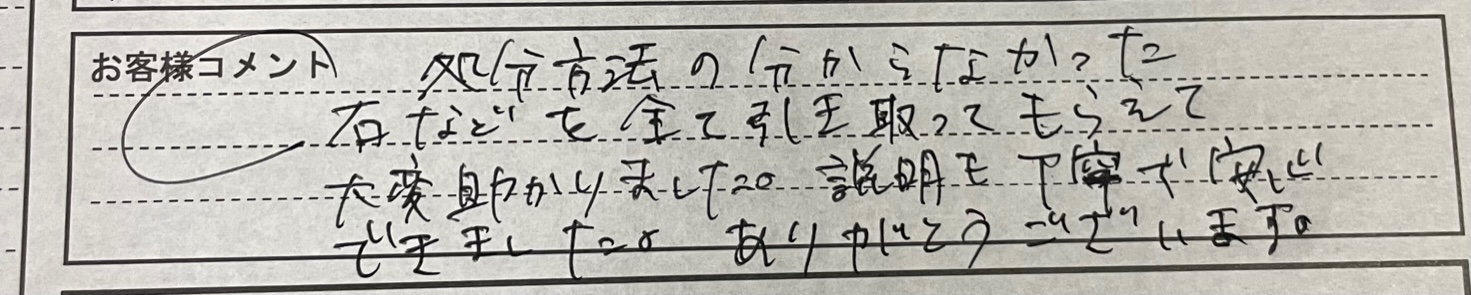 お客様コメント 処分方法の分からなかった
石などを全て引き取ってもらえて
大変助かりました。説明も丁寧で安心
できました。ありがとうございます。